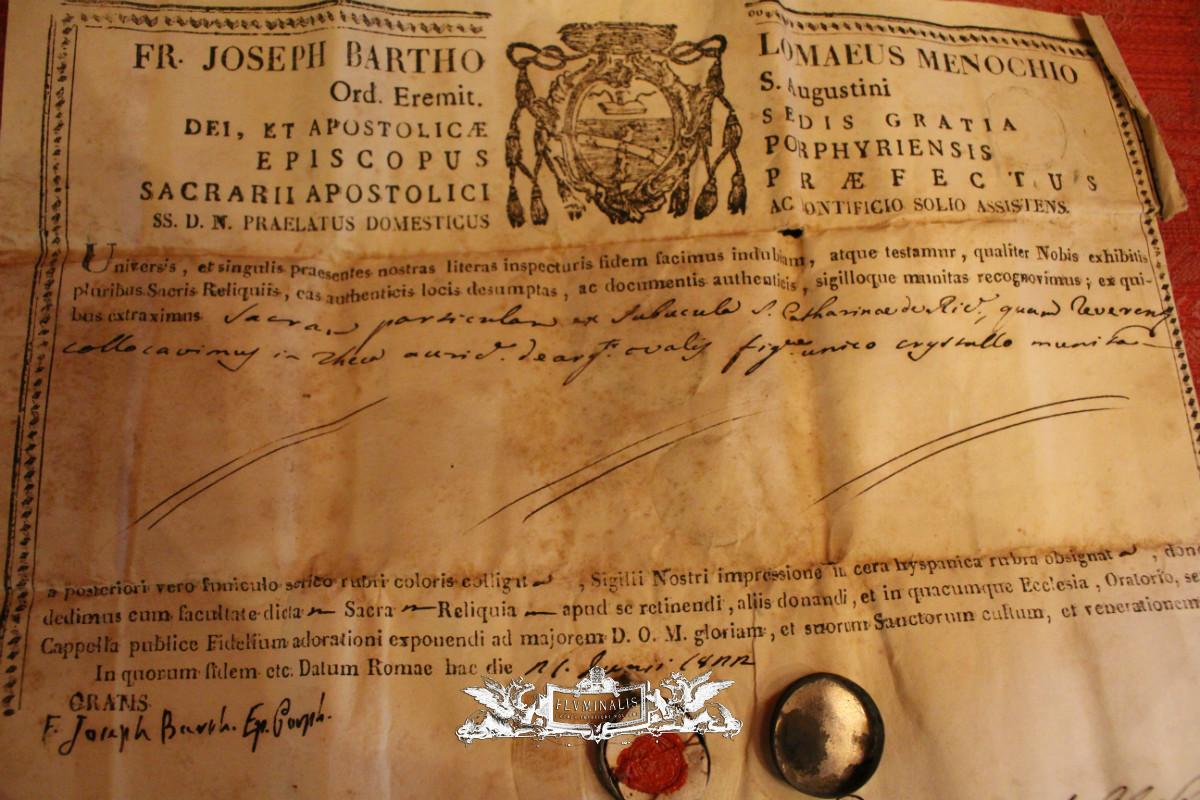 FR. JOSEPH BARTHOLOMAEUS MENOCHIO
Ord. Eremit. S. Augustini
DEI, ET APOSTOLICÆ SEDIS GRATIA
EPISCOPUS PORPHYRIENSIS
SACRARII APOSTOLICI PRÆFECTUS
SS. D. N. PRAELATUS DOMESTICUS AC ONTIFICIO SOLIO ASSISTENS.
Universis, et singulis praesentes nostras literas inspecturis fidem facimus indubiam, atque testamur, qualiter Nobis exhibitis
pluribus Sacris Reliquiis, eas authenticis locis desumptas, ac documentis authenticis, sigilloque munitas recognovimus; ex qui-
bus extraximus Sacram particulam ex Subucula S. Catharinae de Ric. quam Reveren
collocavimus in theca auric. de arg. ovalis fig. unico crystallo munita
a posteriori vero funiculo serico rubri coloris colligat, Sigilli Nostri impressione in cera hyspanica rubra obsignat, dono
dedimus cum facultate dicta Sacra Reliquia apud se retinendi, aliis donandi, et in quacumque Ecclesia, Oratorio, se
Cappella publice Fidelium adorationi exponendi ad majorem D. O. M. gloriam, et suorum Sanctorum cultum, et venerationem
In quorum fidem etc. Datum Romae hac die
GRATIS
F. Joseph Barth. Ep. Porph.
FLVMINALIS